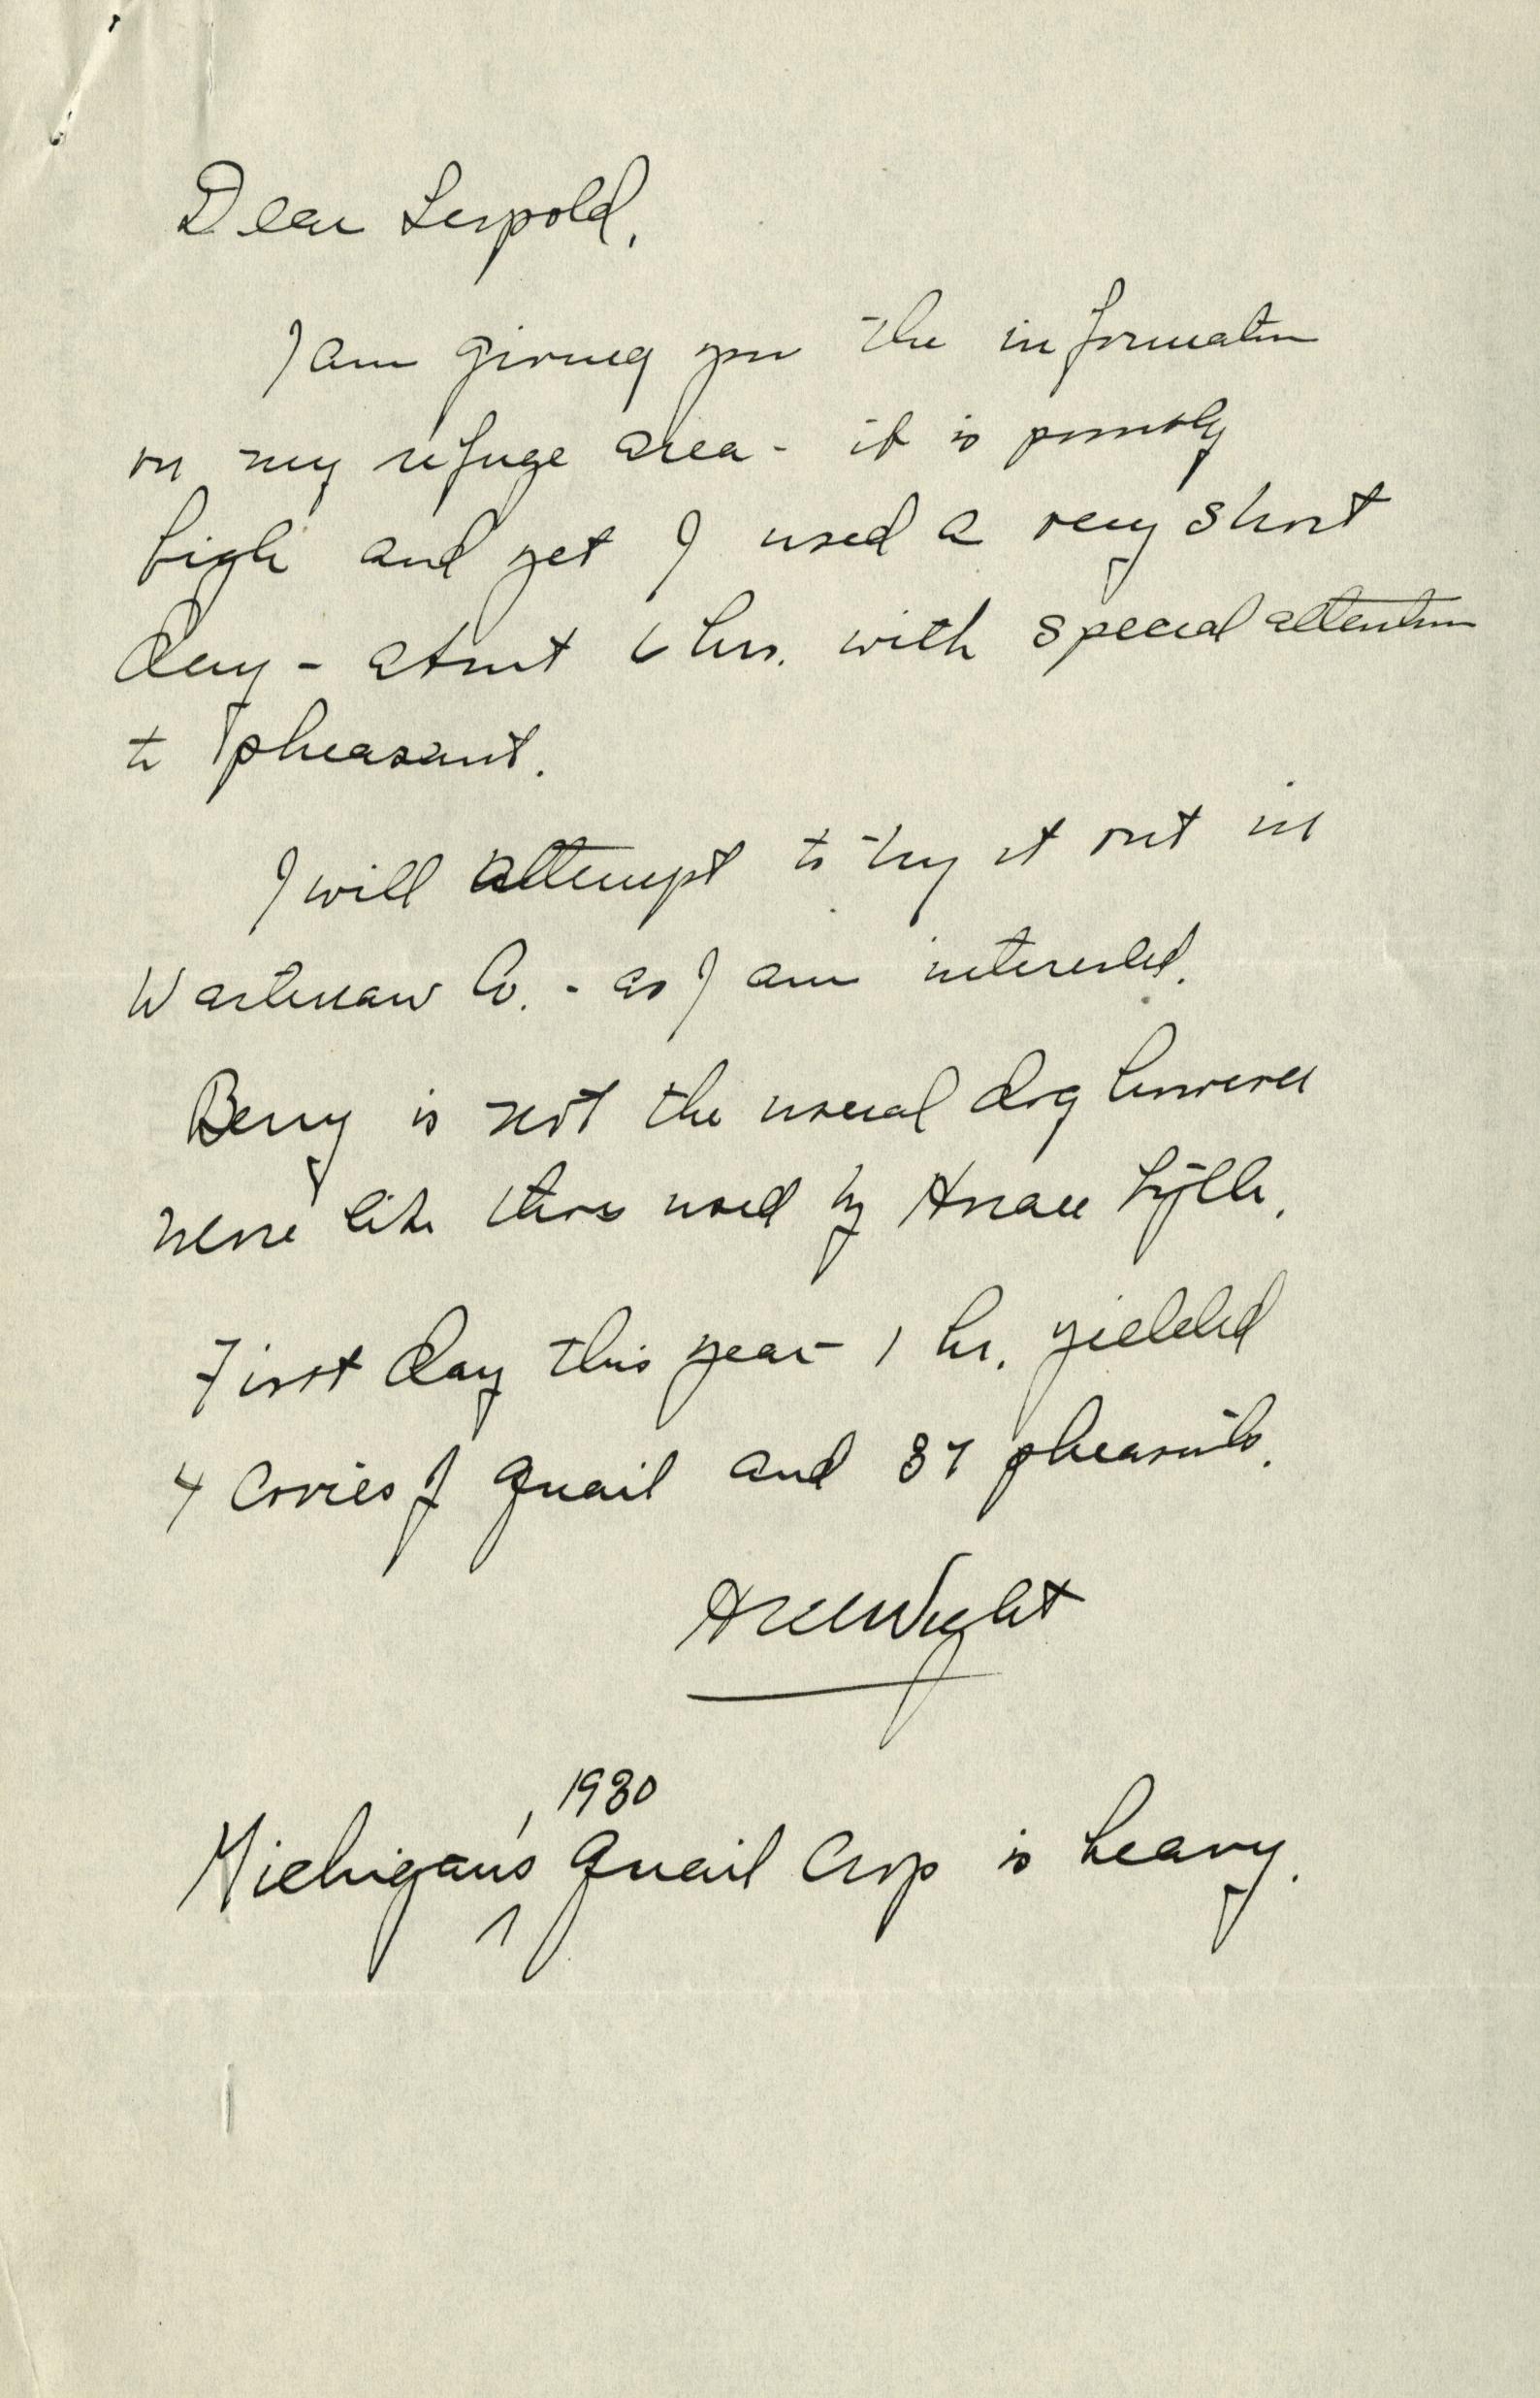 Dear Leopold,
I am giving you the information
on my refuge area - it is possibly
high and yet I used a very short
day - about 6 hrs. with special attention
to pheasant.
I will attempt to try it out in
Washtenaw Co. - as I am interested.
Berry is not the usual dog however
more like those used by Horace Lytle.
First day this year 1 hr. yielded
4 Covies of quail and 87 pheasants.
HMWight
1930
Michigan's quail crop is heavy.